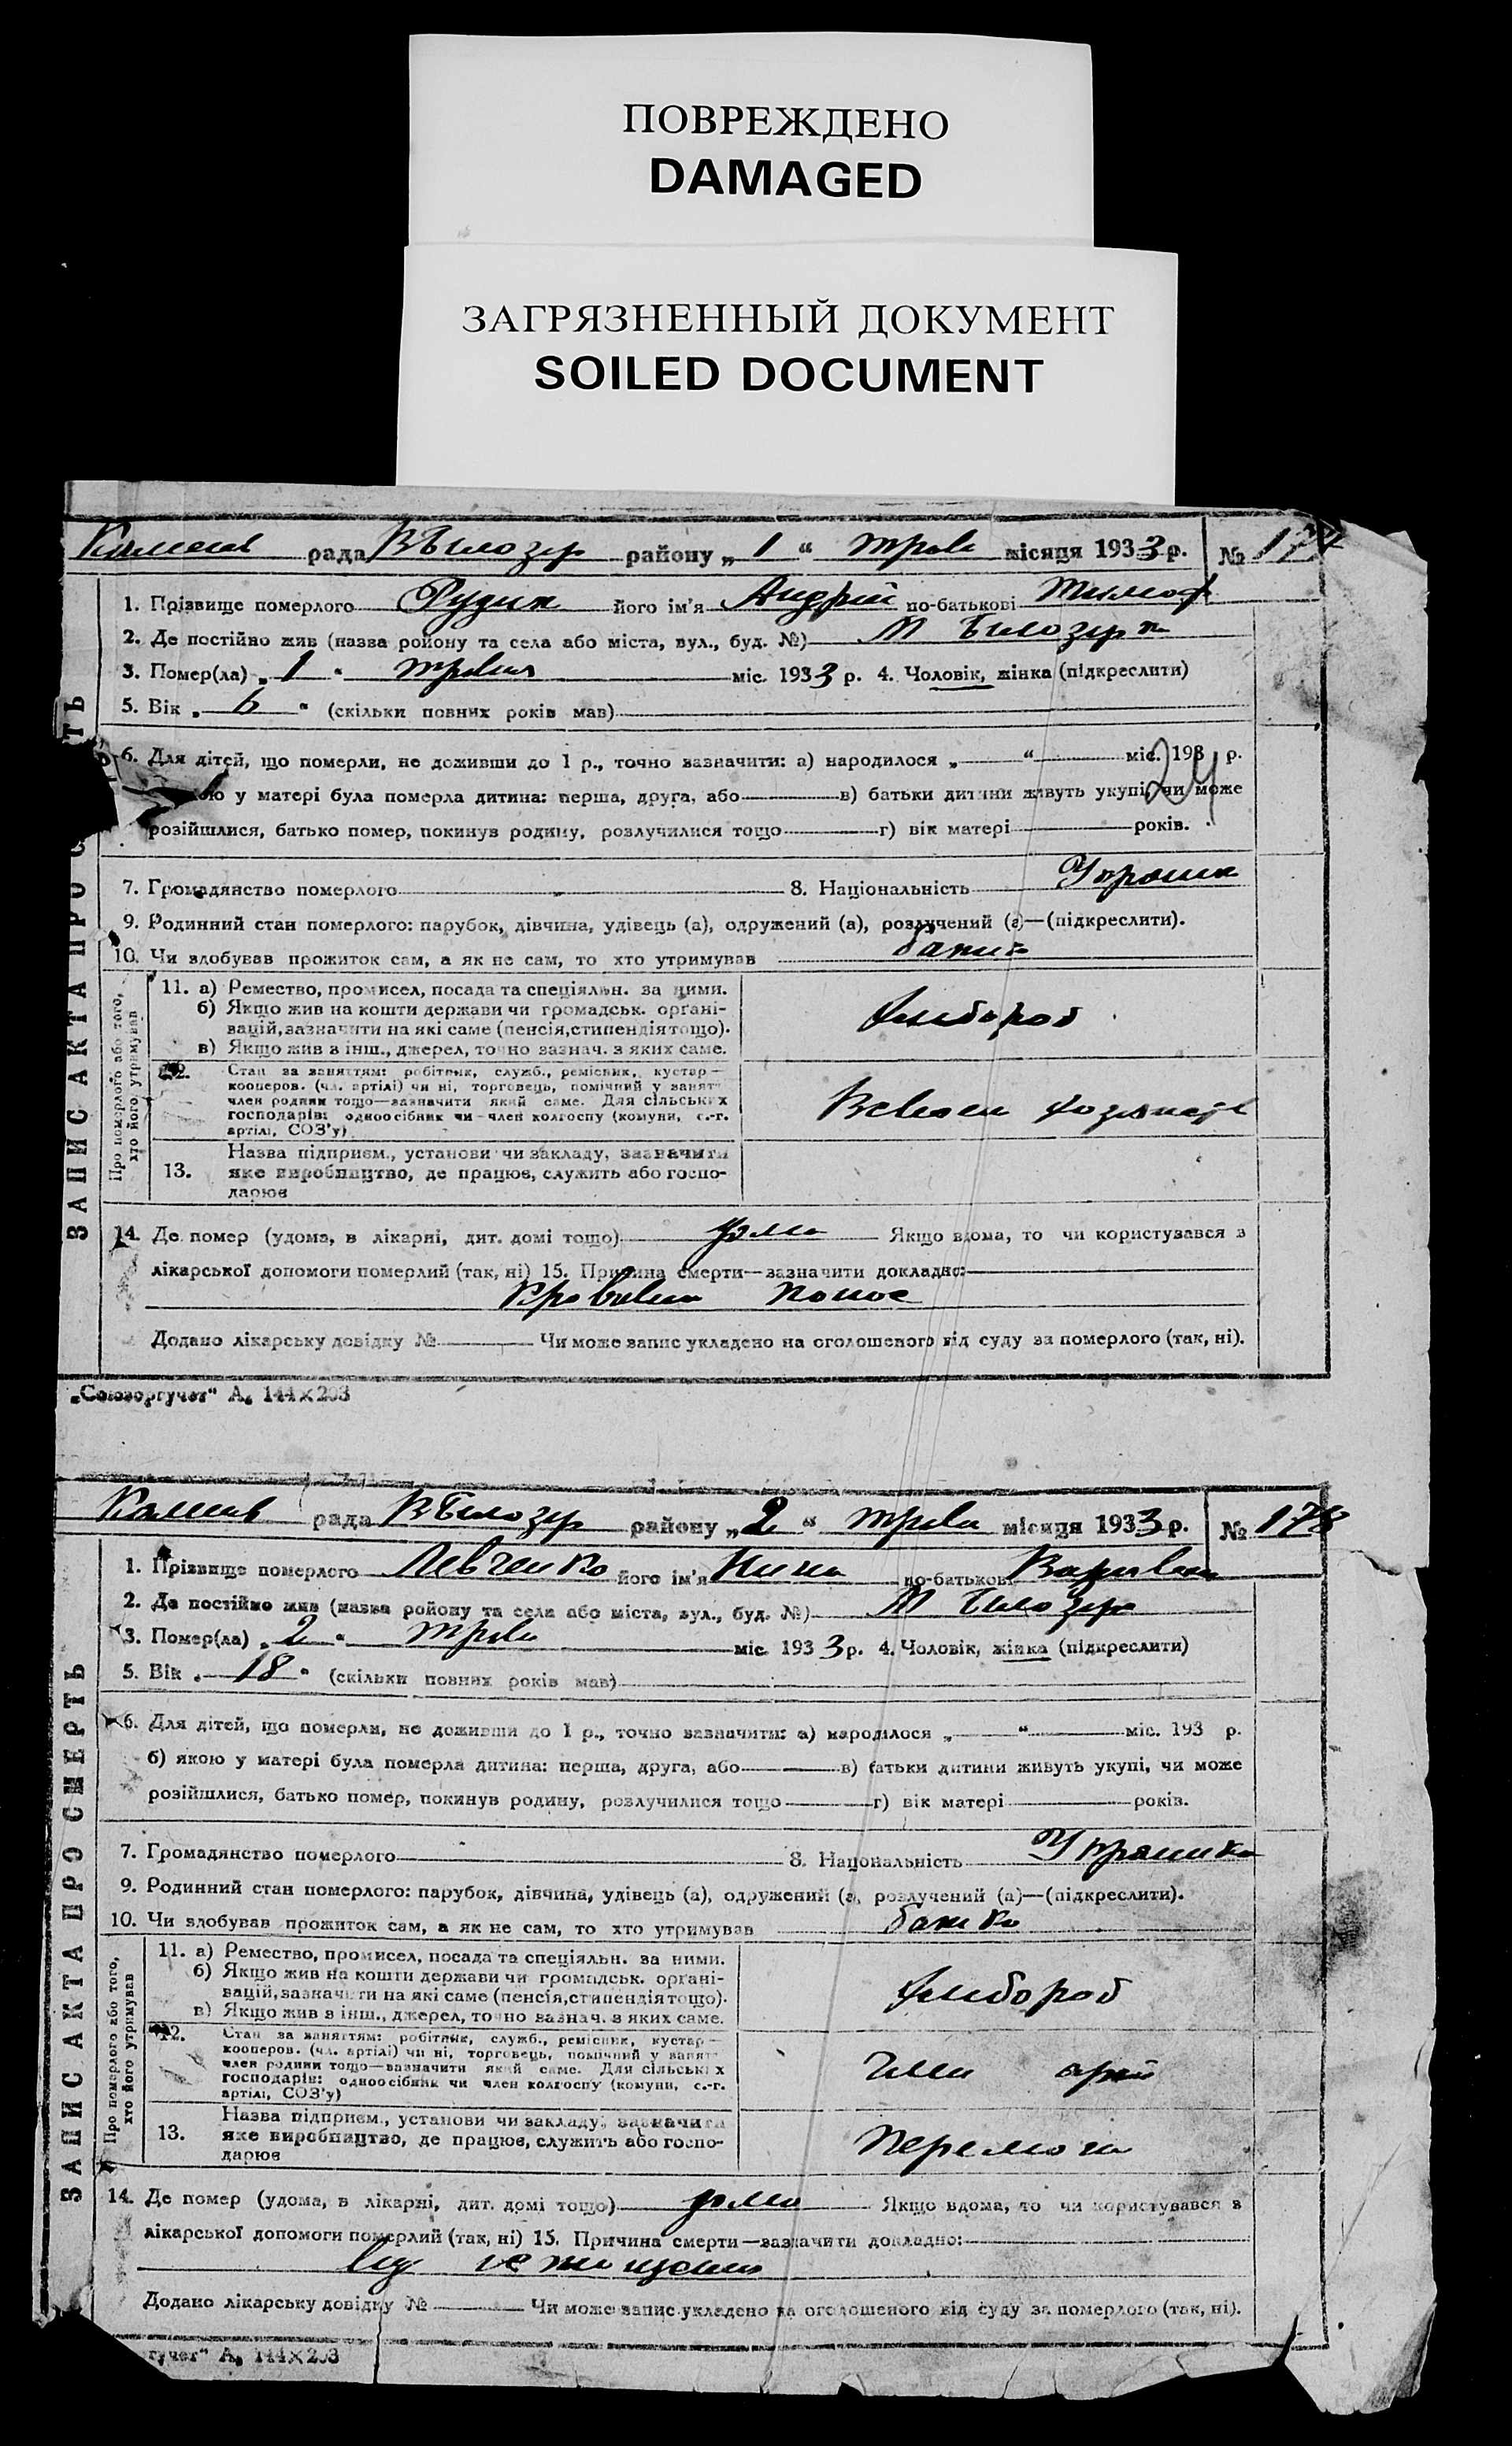 ПОВРЕЖДЕНО
DAMAGED
ЗАГРЯЗНЕННЫЙ ДОКУМЕНТ
SOILED DOCUMENT
рада ВБилозер району „ 1 “ трав місяця 1933 р. №
1. Прізвище померлого його ім'я Андрій по-батькові Тимоф
2. Де постійно жив (назваройону та села або міста, вул., буд. №) М Билозерк
3. Помер(ла) „ 1 “ травня міс. 1933 р. 4. Чоловік, жінка (підкреслити)
5. Вік „ 6 “ (скільки повних років мав)
6. Для дітей, що померли, не доживши до 1 р., точно зазначити: а) народилося „ “ міс. 193 р.
ою у матері була померла дитина: перша, друга, або в) батьки дитини живуть укупі, чи може
24
розійшлися, батько помер, покинув родину, розлучилися тощо г) вік матері років.
7. Громадянство померлого 8. Національність
9. Родинний стан померлого: парубок, дівчина, удівець (а), одружений (а), розлучений (а)—(підкреслити).
10. Чи здобував прожиток сам, а як не сам, то хто утримував
Про померлого або того, хто його утримував
11. а) Ремество, промисел, посада та спеціяльн. за ними.
б) Якщо жив на кошти держави чи громадськ. органі-
зацій, зазначити на які саме (пенсія, стипендія тощо).
в) Якщо жив з інш., джерел, точно зазнач. з яких саме.
хлибороб
12. Стан за заняттям: робітник, служб., ремісник, кустар—
кооперов. (чл. артілі) чи ні, торговець, помічний у занят
член родини тощо—зазначити який саме. Для сільських
господарів: одноосібник чи член колгоспу (комуни, с.-г.
артілі, СОЗ'у)
13. Назва підприєм., установи чи закладу, зазначити
яке виробництво, де працює, служить або госпо-
дарює
14. Де помер (удома, в лікарні, дит. домі тощо) Якщо вдома, то чи користувався з
лікарської допомоги померлий (так, ні) 15. Причина смерти—зазначити докладно:
понос
Додано лікарську довідку № Чи може запис укладено на оголошеного від суду за померлого (так, ні).
ЗАПИС АКТА ПРО С ТЬ
„Союзоргучет“ А₆ 144×203
рада ВБилозер району „ 2 “ трав місяця 1933 р. № 178
1. Прізвище померлого Левченко його ім'я Нина по-батькові
2. Де постійно жив (назва ройону та села або міста, вул., буд. №) М Билозерк
3. Помер(ла) „ 2 “ трав міс. 1933 р. 4. Чоловік, жінка (підкреслити)
5. Вік „ 18 “ (скільки повних років мав)
6. Для дітей, що померли, не доживши до 1 р., точно зазначити: а) народилося „ “ міс. 193 р.
б) якою у матері була померла дитина: перша, друга, або в) батьки дитини живуть укупі, чи може
розійшлися, батько помер, покинув родину, розлучилися тощо г) вік матері років.
7. Громадянство померлого 8. Національність
9. Родинний стан померлого: парубок, дівчина, удівець (а), одружений (а), розлучений (а)—(підкреслити).
10. Чи здобував прожиток сам, а як не сам, то хто утримував батько
Про померлого або того, хто його утримував
11. а) Ремество, промисел, посада та спеціяльн. за ними.
б) Якщо жив на кошти держави чи громадськ. органі-
зацій, зазначити на які саме (пенсія, стипендія тощо).
в) Якщо жив з інш., джерел, точно зазнач. з яких саме.
хлибороб
12. Стан за заняттям: робітник, служб., ремісник, кустар—
кооперов. (чл. артілі) чи ні, торговець, помічний у занят
член родини тощо—зазначити який саме. Для сільських
господарів: одноосібник чи член колгоспу (комуни, с.-г.
артілі, СОЗ'у)
13. Назва підприєм., установи чи закладу, зазначити
яке виробництво, де працює, служить або госпо-
дарює
Перемога
14. Де помер (удома, в лікарні, дит. домі тощо) Якщо вдома, то чи користувався з
лікарської допомоги померлий (так, ні) 15. Причина смерти—зазначити докладно:
Додано лікарську довідку № Чи може запис укладено на оголошеного від суду за померлого (так, ні).
ЗАПИС АКТА ПРО СМЕРТЬ
гучет“ А₆ 144×203